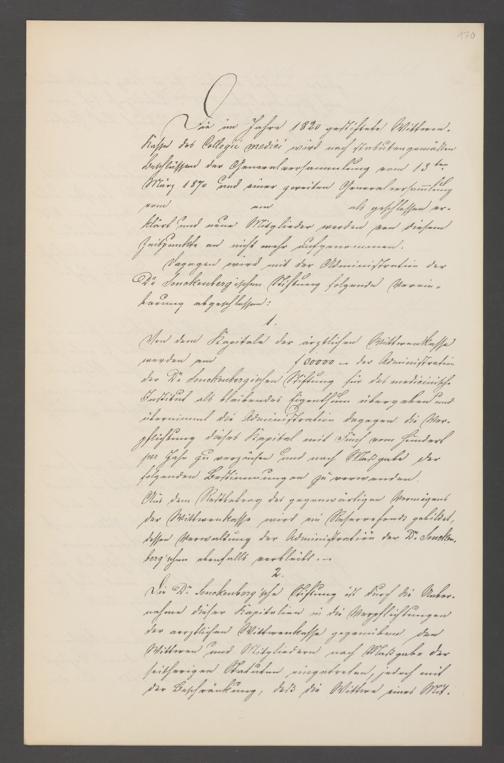 170
Die im Jahre 1820 gestiftete Wittwen-
Kasse des Collegii medici wird nach statutengemäßen
Beschlüssen der Generalversammlung vom 13ten
März 1870 und einer zweiten Generalversammlung
vom am als geschlossen er-
klärt und neue Mitglieder werden von diesem
Zeitpunkte an nicht mehr aufgenommen.
Dagegen wird mit der Administration der
Dr. Senckenbergischen Stiftung folgende Verein-
barung abgeschlossen:
1.
Von dem Kapitale der ärztlichen Wittwenkasse
werden am f 30000 – der Administration
der Dr. Senckenbergischen Stiftung für das medicinische
Institut als bleibendes Eigenthum übergeben und
übernimmt die Administration dagegen die Ver-
pflichtung dieses Kapital mit Fünf vom Hundert
per Jahr zu verzinsen und nach Maßgabe der
folgenden Bestimmungen zu verwenden.
Aus dem Restbetrag des gegenwärtigen Vermögens
der Wittwenkasse wird ein Reservefonds gebildet,
dessen Verwaltung der Administration der Dr. Sencken-
berg'schen ebenfalls verbleibt. –
2.
Die Dr. Senckenberg'sche Stiftung ist durch die Ueber-
nahme dieser Kapitalien in die Verpflichtungen
der aerztlichen Wittwenkasse gegenüber den
Wittwen und Mitgliedern nach Maßgabe der
seitherigen Statuten eingetreten, jedoch mit
der Beschränkung, daß die Wittwe eines Mit-